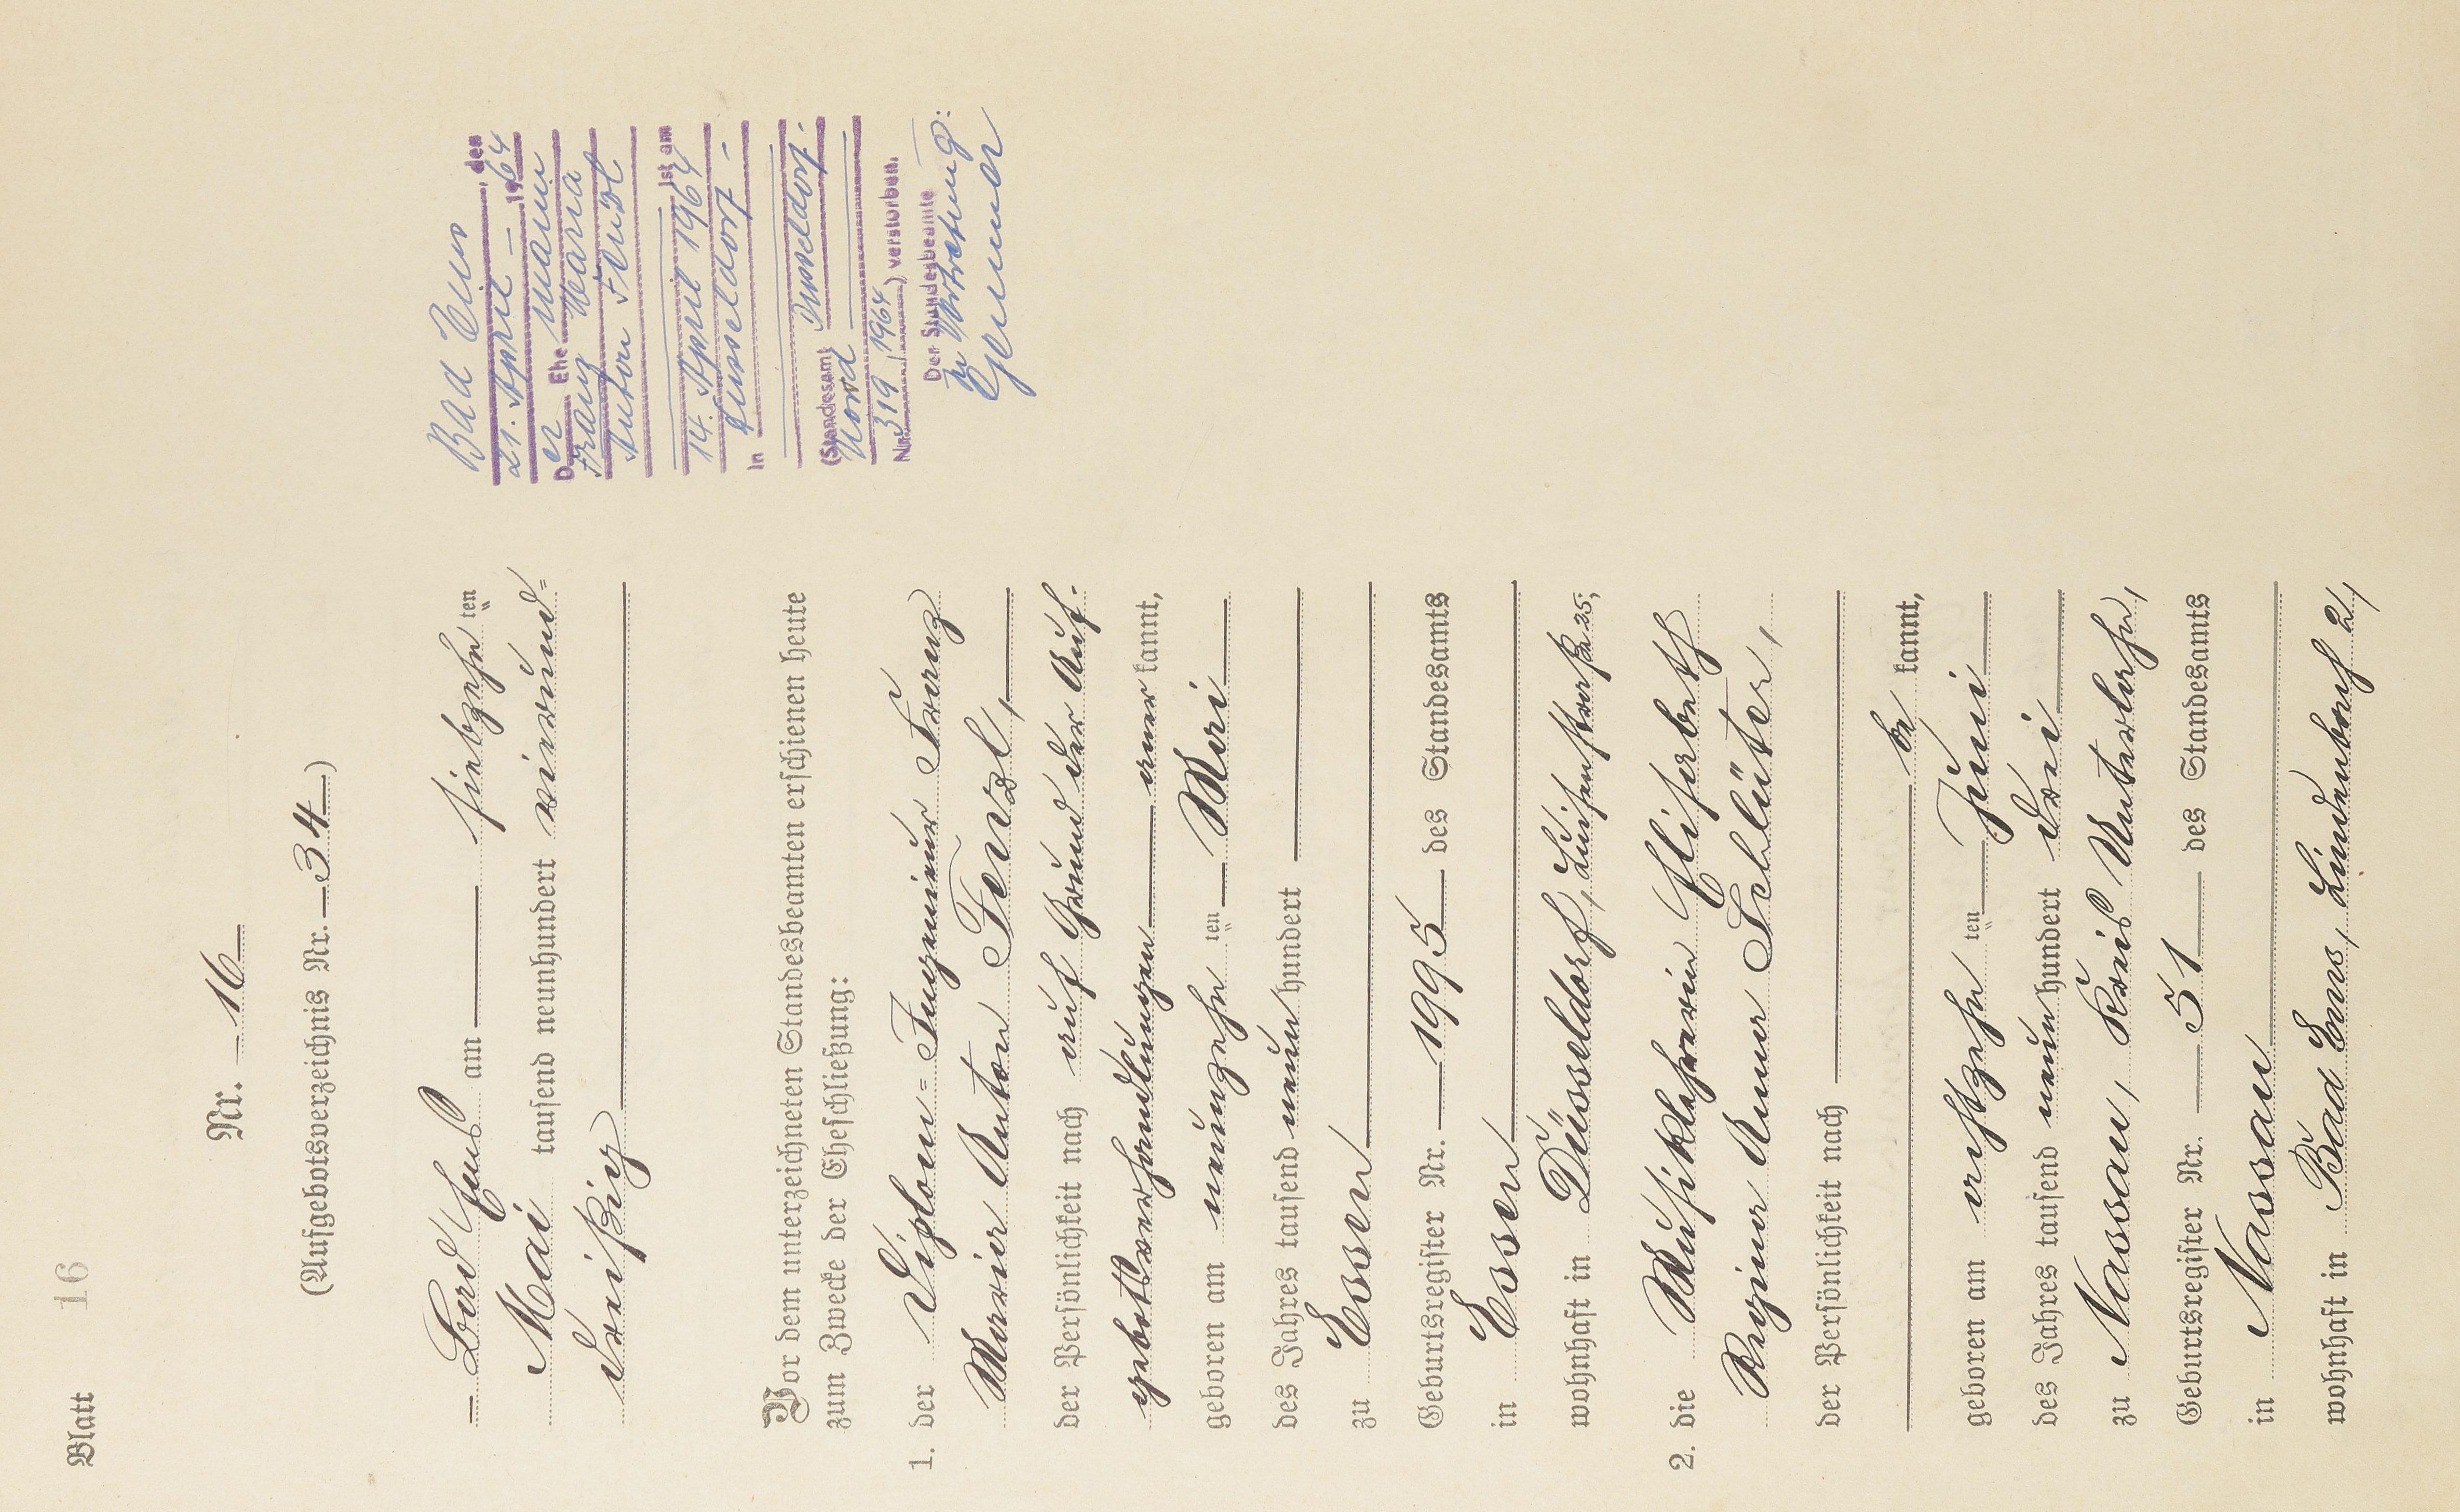 Blatt 16
Nr. 16
(Aufgebotsverzeichnis Nr. 34)
Bad Ems am siebzehn ten
Mai tausend neunhundert vierund=
dreißig
Vor dem unterzeichneten Standesbeamten erschienen heute
zum Zwecke der Eheschließung:
1. der Diplom=Ingenieur Franz
Maria Anton Fendl,
der Persönlichkeit nach auf Grund der Auf-
gebotsverhandlungen aner kannt,
geboren am neunzehn ten Mai
des Jahres tausend neun hundert
zu Essen
Geburtsregister Nr. 1995 des Standesamts
in Essen
wohnhaft in Düsseldorf, Luisenstraße 25;
2. die Musiklehrerin Elisabeth
Regina Anna Schlüter,
der Persönlichkeit nach
be kannt,
geboren am achtzehn ten Juni
des Jahres tausend neun hundert drei
zu Nassau, Kreis Unterlahn,
Geburtsregister Nr. 51 des Standesamts
in Nassau
wohnhaft in Bad Ems, Lindenbach 21,
Bad Ems, den
21. April - 1964
Der Ehe mann
Franz Maria
Anton Fendl
ist am
14. April 1964
in Düsseldorf -
(Standesamt Düsseldorf-
Nord
Nr. 319 / 1964) verstorben.
Der Standesbeamte
In Vertretung: